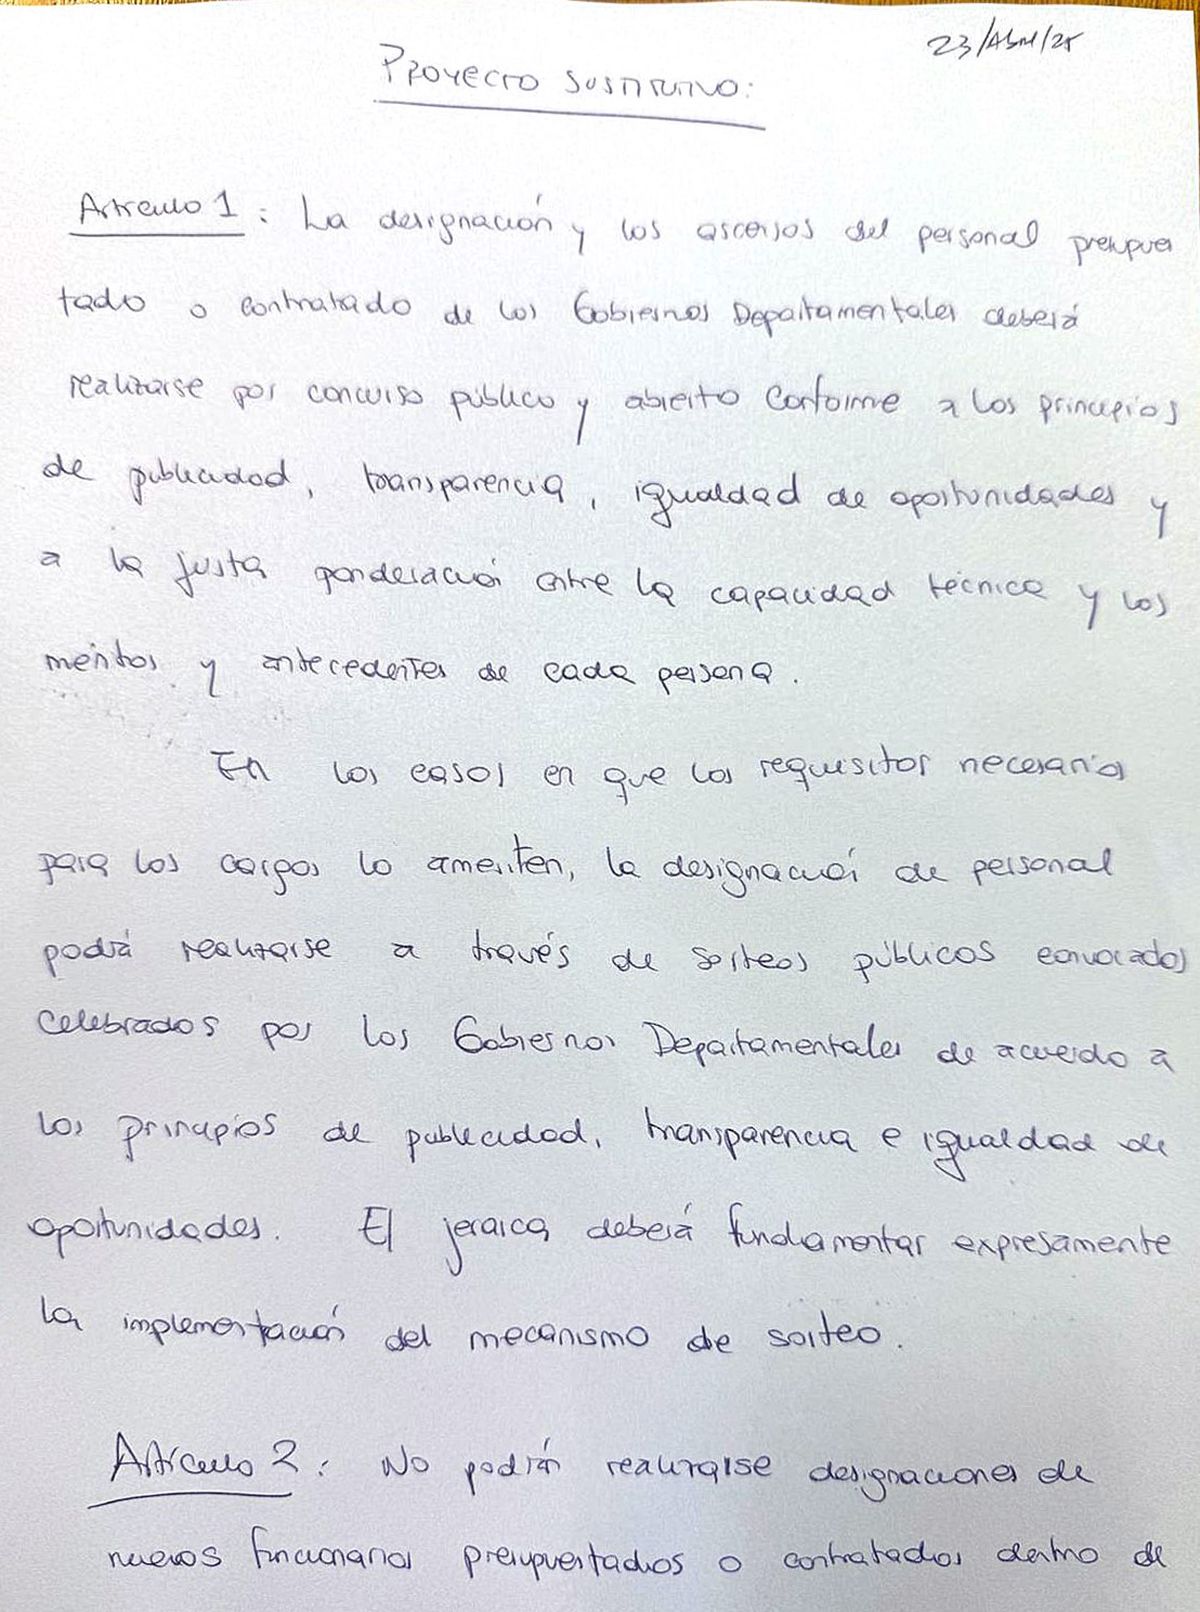 23/Abril/25
PROYECTO SUSTITUTIVO:
Artículo 1: La designación y los ascensos del personal presupues
tado o contratado de los Gobiernos Departamentales deberá
realizarse por concurso público y abierto conforme a los principios
de publicidad, transparencia, igualdad de oportunidades y
a la justa ponderación entre la capacidad técnica y los
méritos y antecedentes de cada persona.
En los casos en que los requisitos necesarios
para los cargos lo ameriten, la designación de personal
podrá realizarse a través de sorteos públicos convocados
celebrados por los Gobiernos Departamentales de acuerdo a
los principios de publicidad, transparencia e igualdad de
oportunidades. El jerarca deberá fundamentar expresamente
la implementación del mecanismo de sorteo.
Artículo 2: No podrán realizarse designaciones de
nuevos funcionarios presupuestados o contratados dentro de